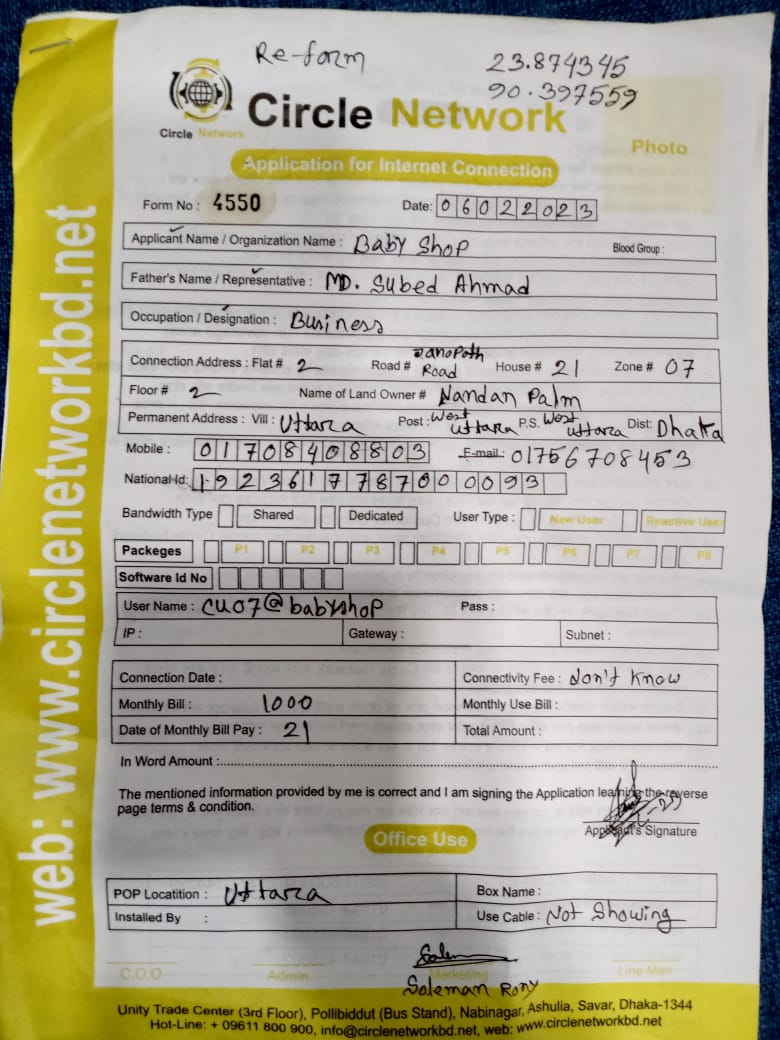 Re-form
23.874345
90.397559
Circle Network
Circle Network
Photo
Application for Internet Connection
Form No : 4550 Date: 06022023
Applicant Name / Organization Name : Baby Shop Blood Group :
Father's Name / Representative : MD. Subed Ahmad
Occupation / Designation : Business
Connection Address : Flat # 2 Road # Road House # 21 Zone # 07
Floor # 2 Name of Land Owner # Nandan Palm
Permanent Address : Vill : Uttara Post : West Uttara P.S. West Uttara Dist: Dhaka
Mobile : 01708408803 E-mail : 01756708453
National Id: 1923617787000093
Bandwidth Type Shared Dedicated User Type : New User Reactive User
Packeges P1 P2 P3 P4 P5 P6 P7 P8
Software Id No
User Name : cu07@babyshop Pass :
IP : Gateway : Subnet :
Connection Date : Connectivity Fee : don't know
Monthly Bill : 1000 Monthly Use Bill :
Date of Monthly Bill Pay : 21 Total Amount :
In Word Amount :
The mentioned information provided by me is correct and I am signing the Application learning the reverse
page terms & condition.
Applicant's Signature
Office Use
POP Locatition : Uttara Box Name :
Installed By : Use Cable : Not Showing
C.O.O Admin Marketing Line Man
Soleman Rony
Unity Trade Center (3rd Floor), Pollibiddut (Bus Stand), Nabinagar, Ashulia, Savar, Dhaka-1344
Hot-Line: + 09611 800 900, info@circlenetworkbd.net, web: www.circlenetworkbd.net
web: www.circlenetworkbd.net